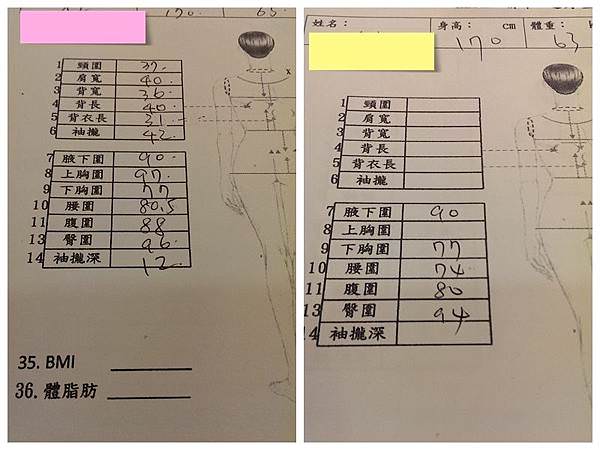 170 65
1 頸圍 37.
2 肩寬 40.
3 背寬 36.
4 背長 40.
5 背衣長 31.
6 袖攏 42.
7 腋下圍 90.
8 上胸圍 97.
9 下胸圍 77
10 腰圍 80.5
11 腹圍 88
13 臀圍 96.
14 袖攏深 12.
35. BMI
36. 體脂肪
姓名： 身高： 170 cm 體重： 63
1 頸圍
2 肩寬
3 背寬
4 背長
5 背衣長
6 袖攏
7 腋下圍 90
8 上胸圍
9 下胸圍 77
10 腰圍 74
11 腹圍 80
13 臀圍 94
14 袖攏深